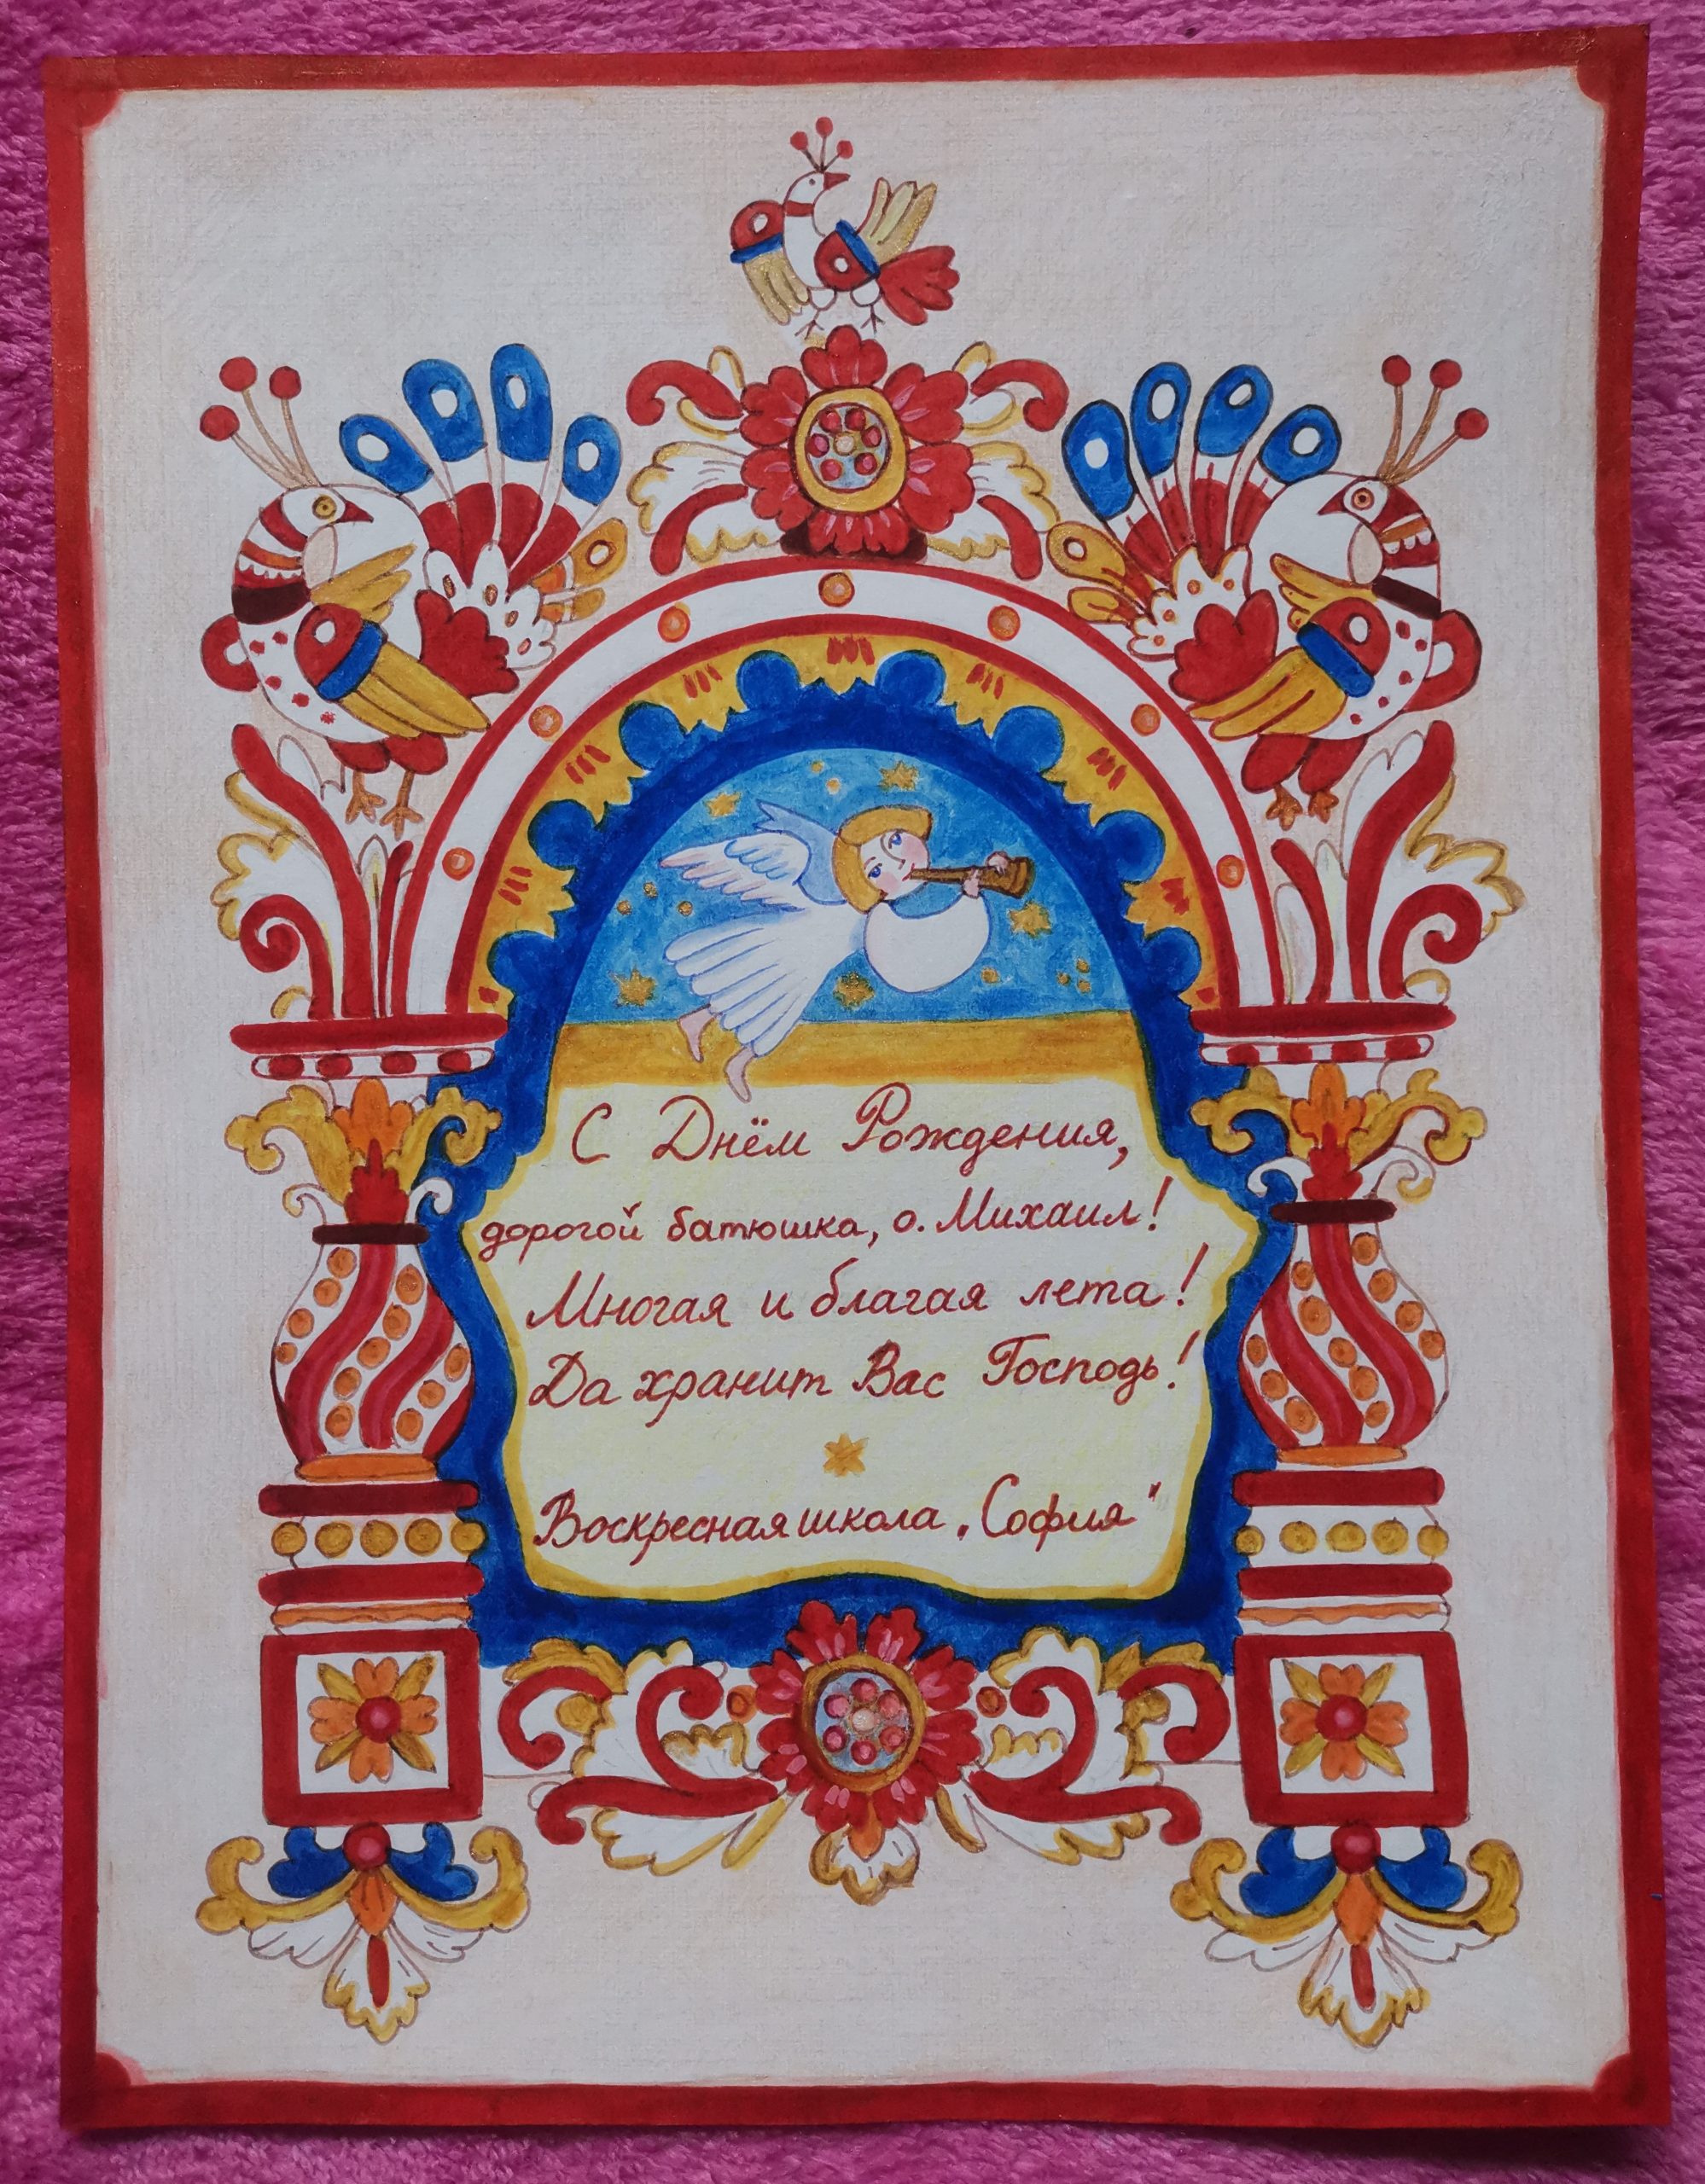 С Днём Рождения,
дорогой батюшка, о. Михаил!
Многая и благая лета!
Да хранит Вас Господь!
Воскресная школа „София"